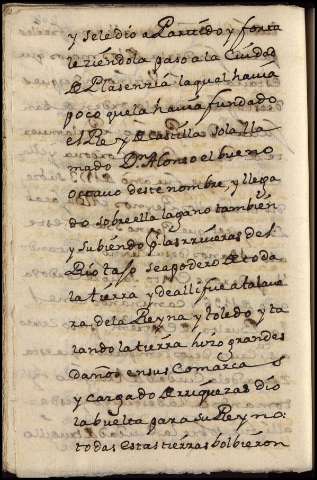 y se le dio a Partido y forta
leziendola paso a la Ciudad
de Plasenzia laqual havia
poco que la havia fundado
el Rey de Castilla Lolalla
mado Dn Alonso el bueno
octavo deste nombre, y llega
do sobre ella la gano tambien
y subiendo p las rriveras del
Rio tajo se apodero de toda
la tierra y de alli fue a talave
ra, de la Reyna, y toledo, y ta
lando la tierra hizo grandes
daños en sus Comarcas
y cargado de rriquezas dio
la buelta para su Reyno:
todas estas tierras bolbieron